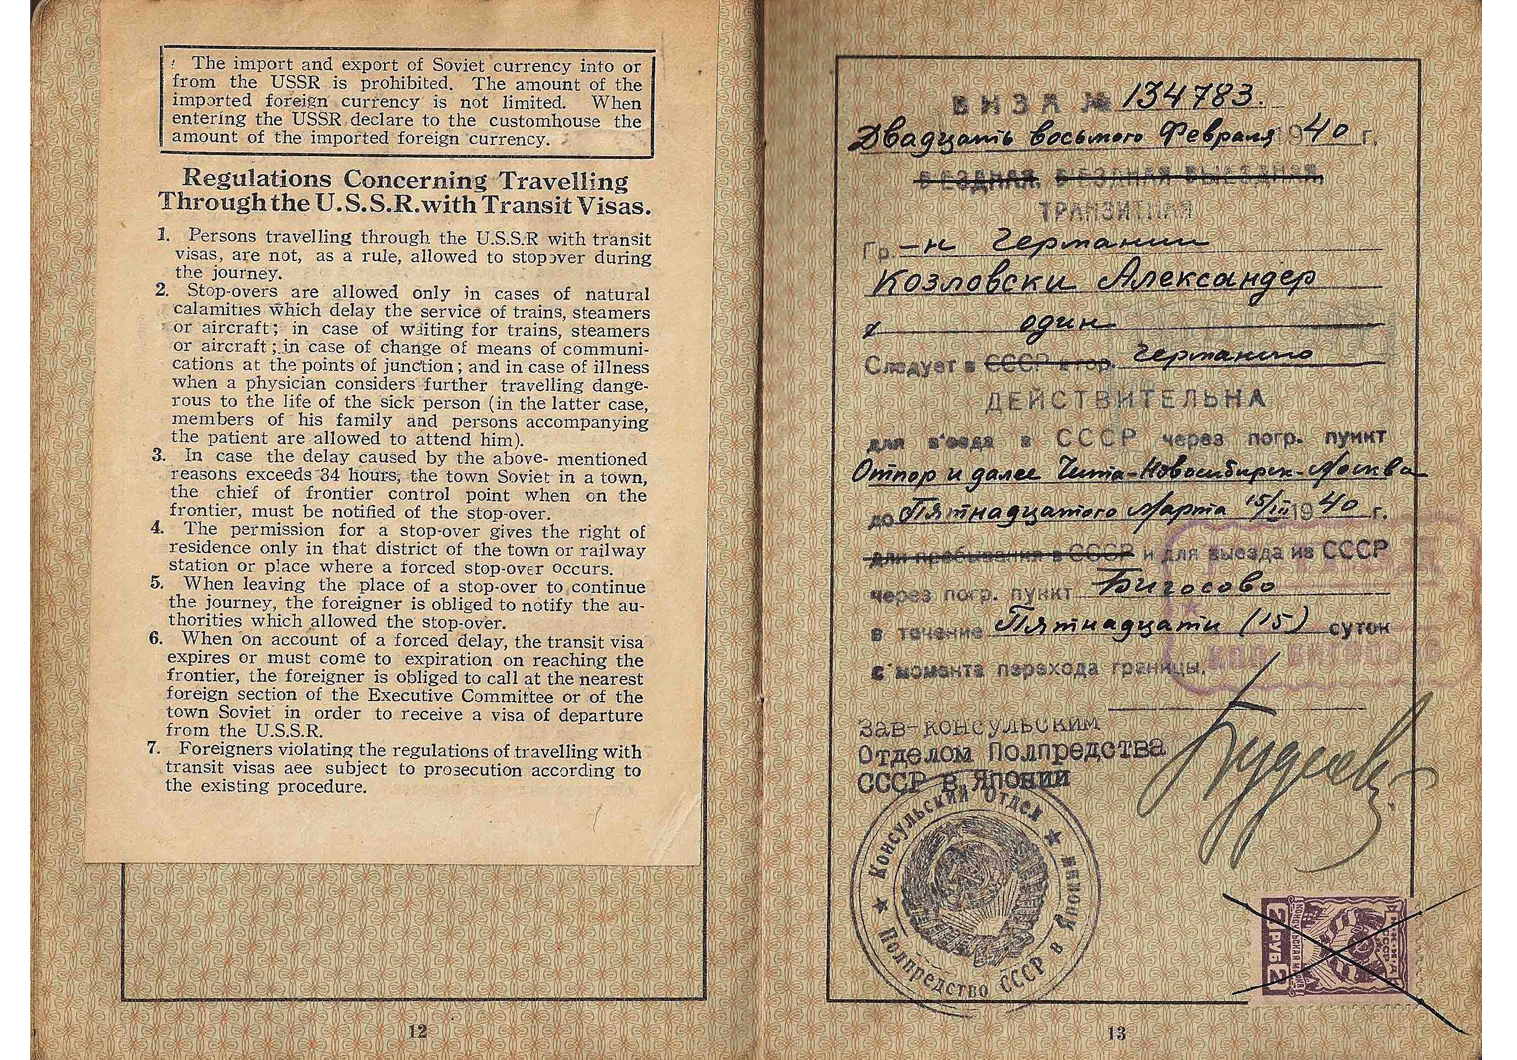 The import and export of Soviet currency into or
from the USSR is prohibited. The amount of the
imported foreign currency is not limited. When
entering the USSR declare to the customhouse the
amount of the imported foreign currency.
Regulations Concerning Travelling
Through the U.S.S.R. with Transit Visas.
1. Persons travelling through the U.S.S.R with transit
visas, are not, as a rule, allowed to stopover during
the journey.
2. Stop-overs are allowed only in cases of natural
calamities which delay the service of trains, steamers
or aircraft; in case of waiting for trains, steamers
or aircraft; in case of change of means of communi-
cations at the points of junction; and in case of illness
when a physician considers further travelling dange-
rous to the life of the sick person (in the latter case,
members of his family and persons accompanying
the patient are allowed to attend him).
3. In case the delay caused by the above- mentioned
reasons exceeds 34 hours, the town Soviet in a town,
the chief of frontier control point when on the
frontier, must be notified of the stop-over.
4. The permission for a stop-over gives the right of
residence only in that district of the town or railway
station or place where a forced stop-over occurs.
5. When leaving the place of a stop-over to continue
the journey, the foreigner is obliged to notify the au-
thorities which allowed the stop-over.
6. When on account of a forced delay, the transit visa
expires or must come to expiration on reaching the
frontier, the foreigner is obliged to call at the nearest
foreign section of the Executive Committee or of the
town Soviet in order to receive a visa of departure
from the U.S.S.R.
7. Foreigners violating the regulations of travelling with
transit visas aee subject to prosecution according to
the existing procedure.
12
ВИЗА № 134783.
Двадцать восьмого Февраля 1940 г.
ВЪЕЗДНАЯ, ВЪЕЗДНАЯ-ВЫЕЗДНАЯ,
ТРАНЗИТНАЯ
Гр.-н Германии
Козловски Александер
один
Следует в СССР Германию
ДЕЙСТВИТЕЛЬНА
для в'езда в СССР через погр. пункт
Отпор и далее Чита-Новосибирск-Москва
до Пятнадцатого Марта 15/III 1940 г.
для пребывания в СССР и для выезда из СССР
через погр. пункт Бигосово
в течение Пятнадцати (15) суток
с момента перехода границы.
КПП БИГОСОВО
Зав-консульским
Отделом Полпредства
СССР в Японии
★ Консульский Отдел ★ Полпредство СССР в Японии
2 РУБ 2
13